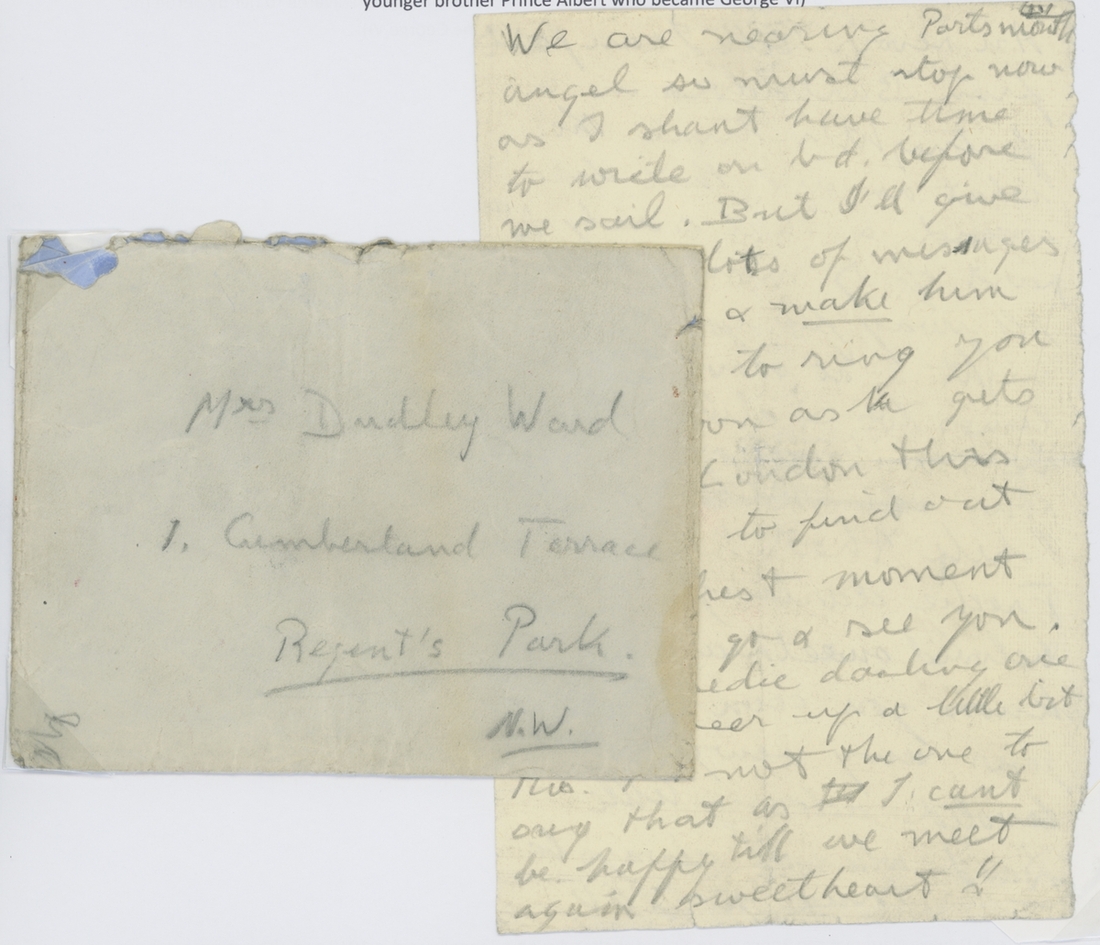 younger brother Prince Albert who became George VI)
We are nearing Portsmouth
angel so must stop now
as I shant have time
to write on bd. before
we sail. But I'll give
lots of messages
& make him
to ring you
as he gets
London this
to find out
moment
go & see you.
darling one
up a little bit
not the one to
that as I cant
be happy till we meet
again sweetheart!!
Mrs Dudley Ward
1. Cumberland Terrace
Regent's Park.
N.W.